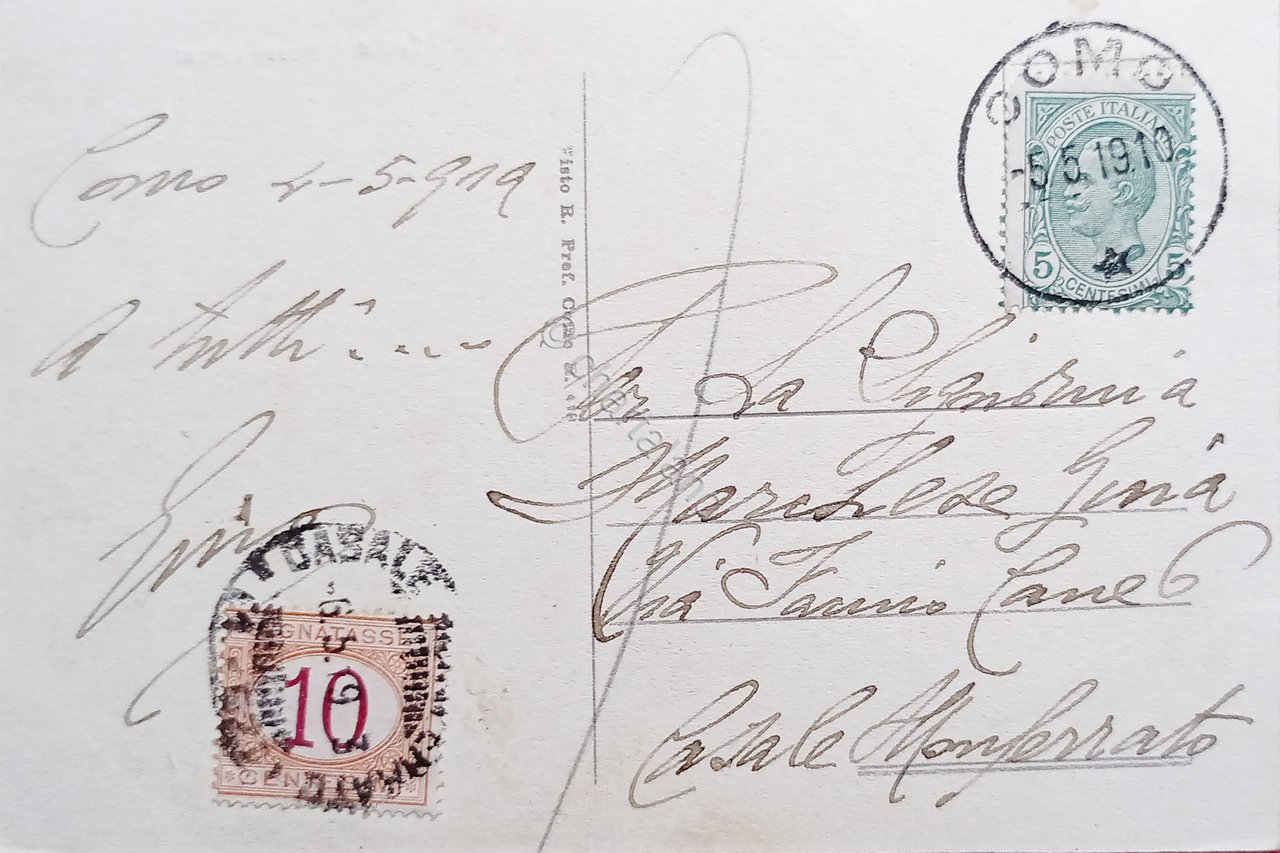 Como 4-5-919
A tutti....
Gina
Visto R. Pref. Como N. 418
COMO
-5.5.1919
POSTE ITALIANE
5 CENTESIMI 5
Per La Signorina
Marchese Gina
Via Facino Cane 6
Casale Monferrato
CASALE
MONFERRATO
SEGNATASSE
10
CENTESIMI